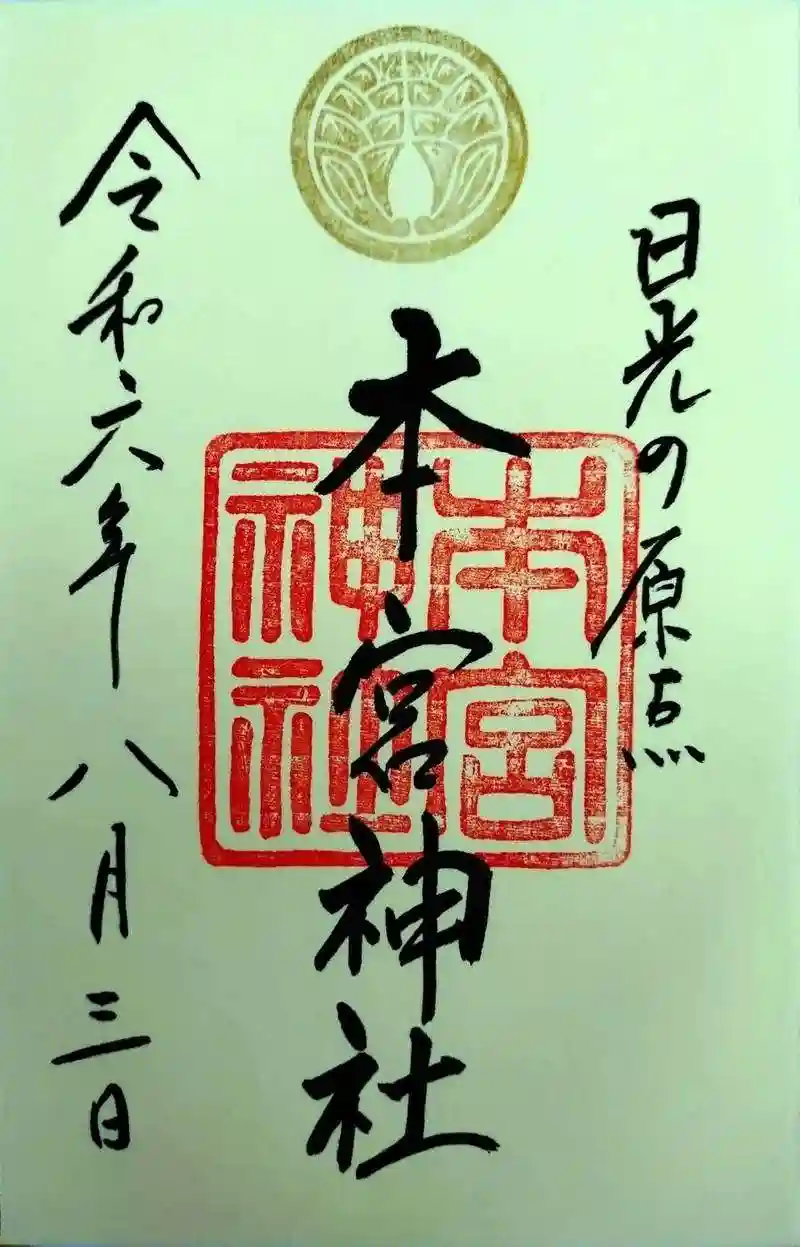 日光の原点
本宮神社
本宮神社
令和六年八月三日